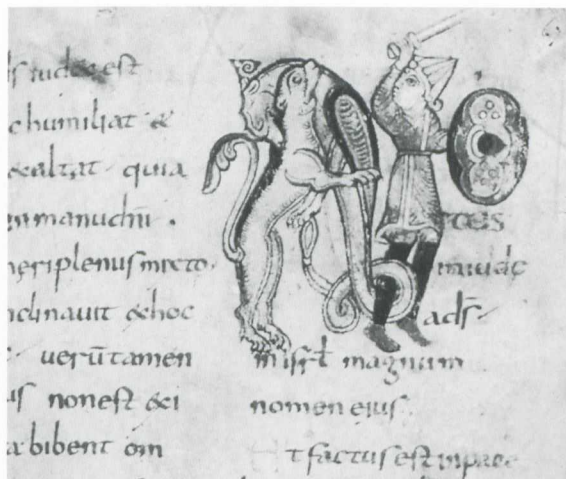 ds iudex est
c humiliat &
xaltat quia
in manu dñi .
meri plenus mixto .
nclinauit & hoc
uerũtamen
us non est exi
bibent om
TUS
iniudę
a ds̄ .
in isrł magnum
nomen eius .
t factus est in pace